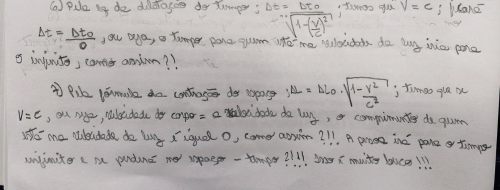 6) Pela eq de dilatação do tempo; Δt = Δt0 / √(1-(V/c)²); temos que V = c; ficará
Δt = Δt0/0, ou seja, o tempo para quem está na velocidade da luz iria para
o infinito, como assim?!!
7) Pela fórmula da contração do espaço; Δ = ΔL0 . √(1-V²/c²); temos que se
V=c, ou seja, velocidade do corpo = a velocidade da luz, o comprimento de quem
está na velocidade da luz é igual 0, como assim?!!! A pessoa irá para o tempo
infinito e se perderá no espaço-tempo?!!! Isso é muito louco!!!